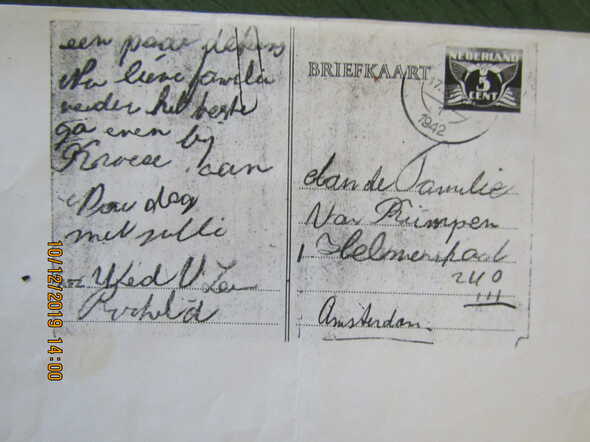 een paar
Nu lieve familie
verder het beste
ga even bij
Kroese aan
Dou dag
met
Wed V
BRIEFKAART
NEDERLAND
5
CENT
1942
Aan de Familie
Van Rumpen
1 Helmerstraat
240
III
Amsterdam
10/12/2019 14:00